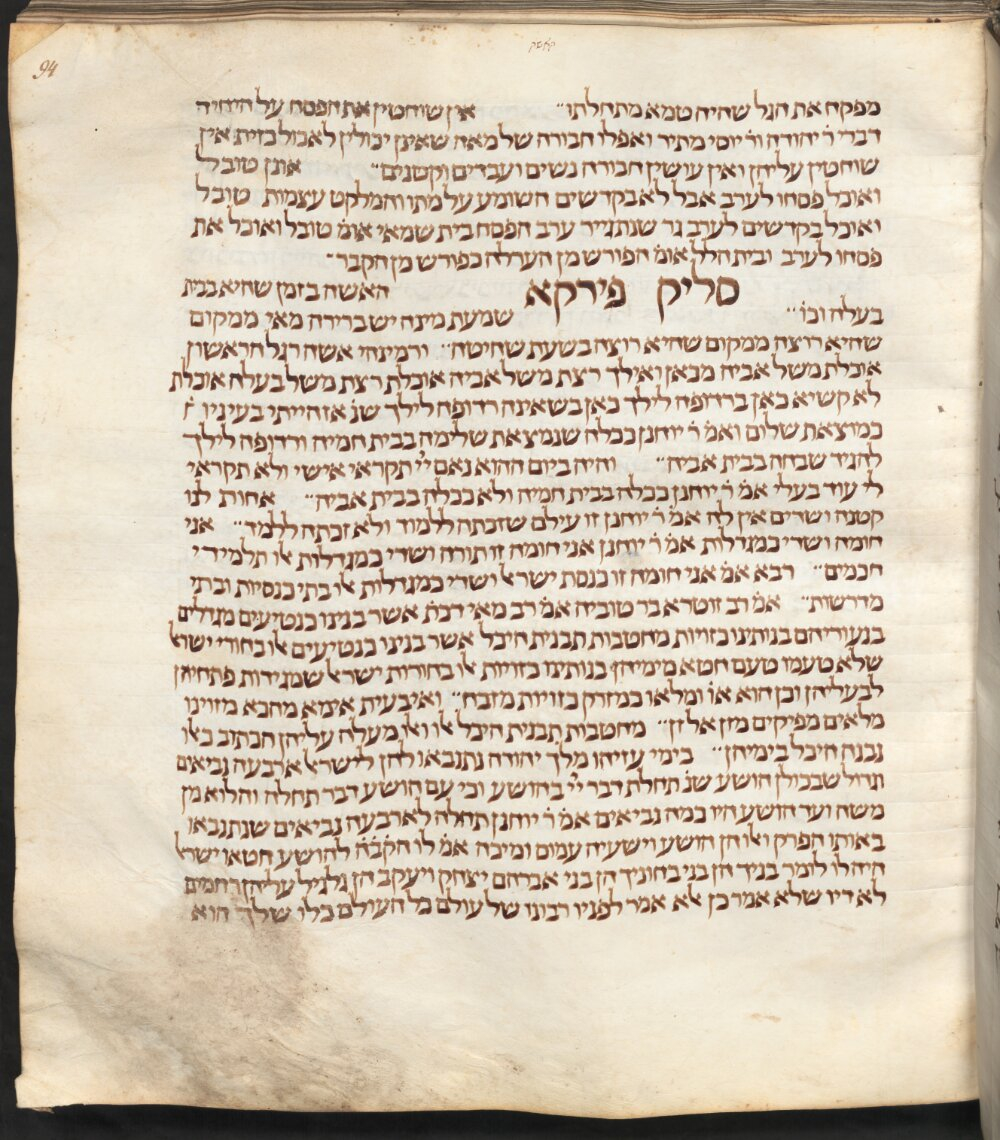 94
מפקח את הגל שהיה טמא מתחלתו׃ אין שוחטין את הפסח על היחיד
דברי ר׳ יהודה ור׳ יוסי מתיר ואפלו חבורה של מאה שאינן יכולין לאכול כזית אין
שוחטין עליהן ואין עושין חבורה נשים ועבדים וקטנים׃ אונן טובל
ואוכל פסחו לערב אבל לא בקדשים השומע על מתו והמלקט עצמות טובל
ואוכל בקדשים לערב גר שנתגייר ערב הפסח בית שמאי אומ׳ טובל ואוכל את
פסחו לערב ובית הלל אומ׳ הפורש מן הערלה כפורש מן הקבר׃
סליק פירקא האשה בזמן שהיא בבית
בעלה וכו׳׃ שמעת מינה יש ברירה מאי ממקום
שהיא רוצה ממקום שהיא רוצה בשעת שחיטה׃ ורמינהי אשה רגל הראשון
אוכלת משל אביה מכאן ואילך רצת משל אביה אוכלת רצת משל בעלה אוכלת
לא קשיא כאן ברדופה לילך כאן בשאינה רדופה לילך שנ׳ אז הייתי בעיניו
כמוצאת שלום ואמ׳ ר׳ יוחנן ככלה שנמצאת שלימה בבית חמיה ורדופה לילך
להגיד שבחה בבית אביה׃ והיה ביום ההוא נאם יי׳ תקראי אישי ולא תקראי
לי עוד בעלי אמ׳ ר׳ יוחנן ככלה בבית חמיה ולא ככלה בבית אביה׃ אחות לנו
קטנה ושדים אין לה אמ׳ ר׳ יוחנן זו עילם שזכתה ללמוד ולא זכתה ללמד׃ אני
חומה ושדי כמגדלות אמ׳ ר׳ יוחנן אני חומה זו תורה ושדי כמגדלות אלו תלמידי
חכמים׃ רבא אמ׳ אני חומה זו כנסת ישראל ושדי כמגדלות אלו בתי כנסיות ובתי
מדרשות׃ אמ׳ רב זוטרא בר טוביה אמ׳ רב מאי דכת׳ אשר בנינו כנטיעים מגודלים
בנעוריהם בנותינו כזויות מחטבות תבנית היכל אשר בנינו כנטיעים אלו בחורי ישראל
שלא טעמו טעם חטא מימיהן בנותינו כזויות אלו בתולות ישראל שמגידות פתחיהן
לבעליהן וכן הוא או׳ ומלאו כמזרק כזויות מזבח׃ ואיבעית אימא מהכא מזוינו
מלאים מפיקים מזן אל זן׃ מחטבות תבנית היכל אלו ואלו מעלה עליהן הכתוב כאלו
נבנה היכל בימיהן׃ בימי עזיהו מלך יהודה נתנבאו להן לישראל ארבעה נביאים
וגדול שבכולן הושע שנ׳ תחלת דבר יי׳ בהושע וכי עם הושע דבר תחלה והלוא מן
משה ועד הושע היו כמה נביאים אמ׳ ר׳ יוחנן תחלה לארבעה נביאים שנתנבאו
באותו הפרק ואלו הן הושע וישעיה עמוס ומיכה אמ׳ לו הקב״ה להושע חטאו ישראל
היה לו לומר בניך הן בני בחוניך הן בני אברהם יצחק ויעקב הן גלגיל עליהן רחמים
לא דיו שלא אמר כן אלא אמר לפניו רבונו של עולם כל העולם כלו שלך הוא